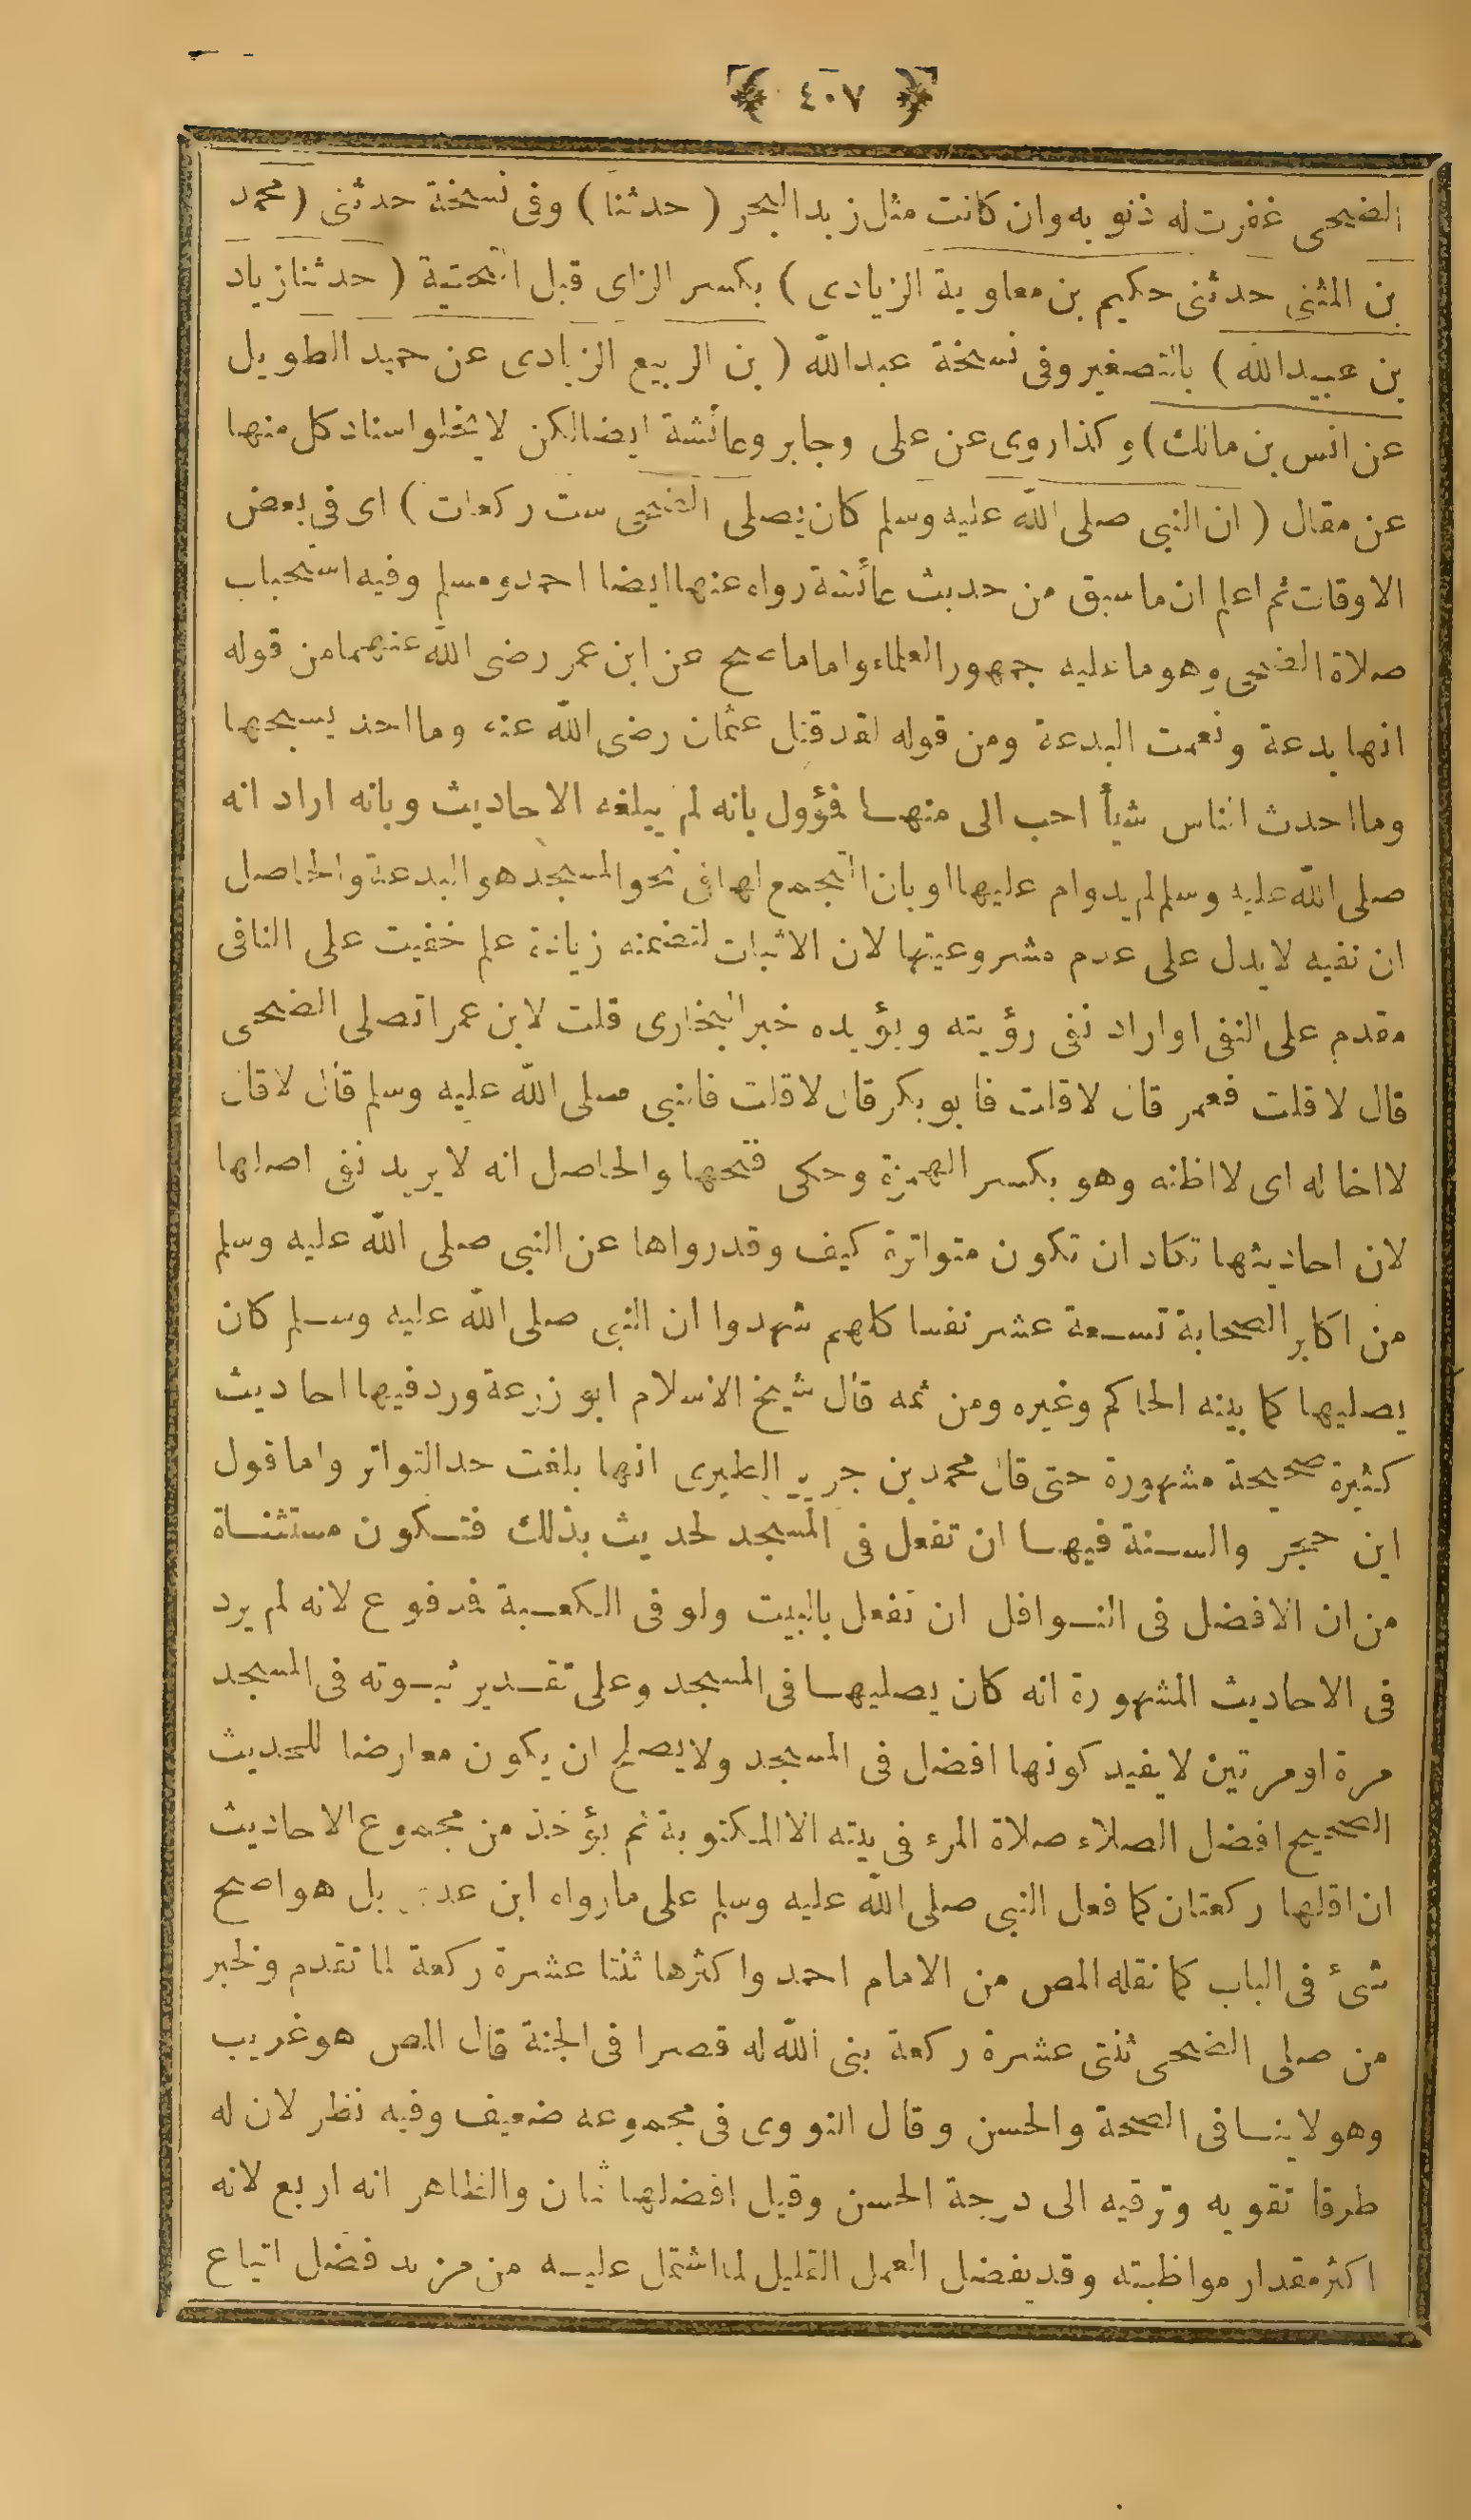 ٤٠٧
الضحى غفرت له ذنوبه وان كانت مثل زبد البحر ( حدثنا ) وفى نسخة حدثنى ( محمد
بن المثنى حدثنى حكيم بن معاوية الزيادى ) بكسر الزاى قبل التحتية ( حدثنا زياد
بن عبيد الله ) بالتصغير وفى نسخة عبد الله ( بن الربيع الزيادى عن حميد الطويل
عن انس بن مالك ) وكذا روى عن على وجابر وعائشة ايضا لكن لا يخلو اسناد كل منها
عن مقال ( ان النبى صلى الله عليه وسلم كان يصلى الضحى ست ركعات ) اى فى بعض
الاوقات ثم اعلم ان ما سبق من حديث عائشة رواه عنها ايضا احمد ومسلم وفيه استحباب
صلاة الضحى وهو ما عليه جمهور العلماء واما ما صح عن ابن عمر رضى الله عنهما من قوله
انها بدعة ونعمت البدعة ومن قوله لقد قتل عثمان رضى الله عنه وما احد يسبحها
وما احدث الناس شيأ احب الى منها فؤول بانه لم يبلغه الاحاديث وبانه اراد انه
صلى الله عليه وسلم لم يداوم عليها او بان التجمع لها فى نحو المسجد هو البدعة والحاصل
ان نفيه لا يدل على عدم مشروعيتها لان الاثبات لتضمنه زيادة علم خفيت على النافى
مقدم على النفى او اراد نفى رؤيته ويؤيده خبر البخارى قلت لابن عمر اتصلى الضحى
قال لا قلت فعمر قال لا قلت فابو بكر قال لا قلت فالنبى صلى الله عليه وسلم قال لا قال
لا اخاله اى لا اظنه وهو بكسر الهمزة وحكى فتحها والحاصل انه لا يريد نفى اصلها
لان احاديثها تكاد ان تكون متواترة كيف وقد رواها عن النبى صلى الله عليه وسلم
من اكابر الصحابة تسعة عشر نفسا كلهم شهدوا ان النبى صلى الله عليه وسلم كان
يصليها كما بينه الحاكم وغيره ومن ثمه قال شيخ الاسلام ابو زرعة ورد فيها احاديث
كثيرة صحيحة مشهورة حتى قال محمد بن جرير الطبرى انها بلغت حد التواتر واما قول
ابن حجر والسنة فيها ان تفعل فى المسجد لحديث بذلك فتكون مستثناة
من ان الافضل فى النوافل ان تفعل بالبيت ولو فى الكعبة فدفوع لانه لم يرد
فى الاحاديث المشهورة انه كان يصليها فى المسجد وعلى تقدير ثبوته فى المسجد
مرة او مرتين لا يفيد كونها افضل فى المسجد ولا يصلح ان يكون معارضا للحديث
الصحيح افضل الصلاة صلاة المرء فى بيته الا المكتوبة ثم يؤخذ من مجموع الاحاديث
ان اقلها ركعتان كما فعل النبى صلى الله عليه وسلم على ما رواه ابن عدى بل هو اصح
شىء فى الباب كما نقله المص من الامام احمد واكثرها ثنتا عشرة ركعة لما تقدم ولخبر
من صلى الضحى ثنتى عشرة ركعة بنى الله له قصرا فى الجنة قال المص هو غريب
وهو لا ينافى الصحة والحسن وقال النووى فى مجموعه ضعيف وفيه نظر لان له
طرقا تقويه وترقيه الى درجة الحسن وقيل افضلها ثمان والظاهر انه اربع لانه
اكثر مقدار مواظبته وقد يفضل العمل القليل لما اشتمل عليه من مزيد فضل اتباع